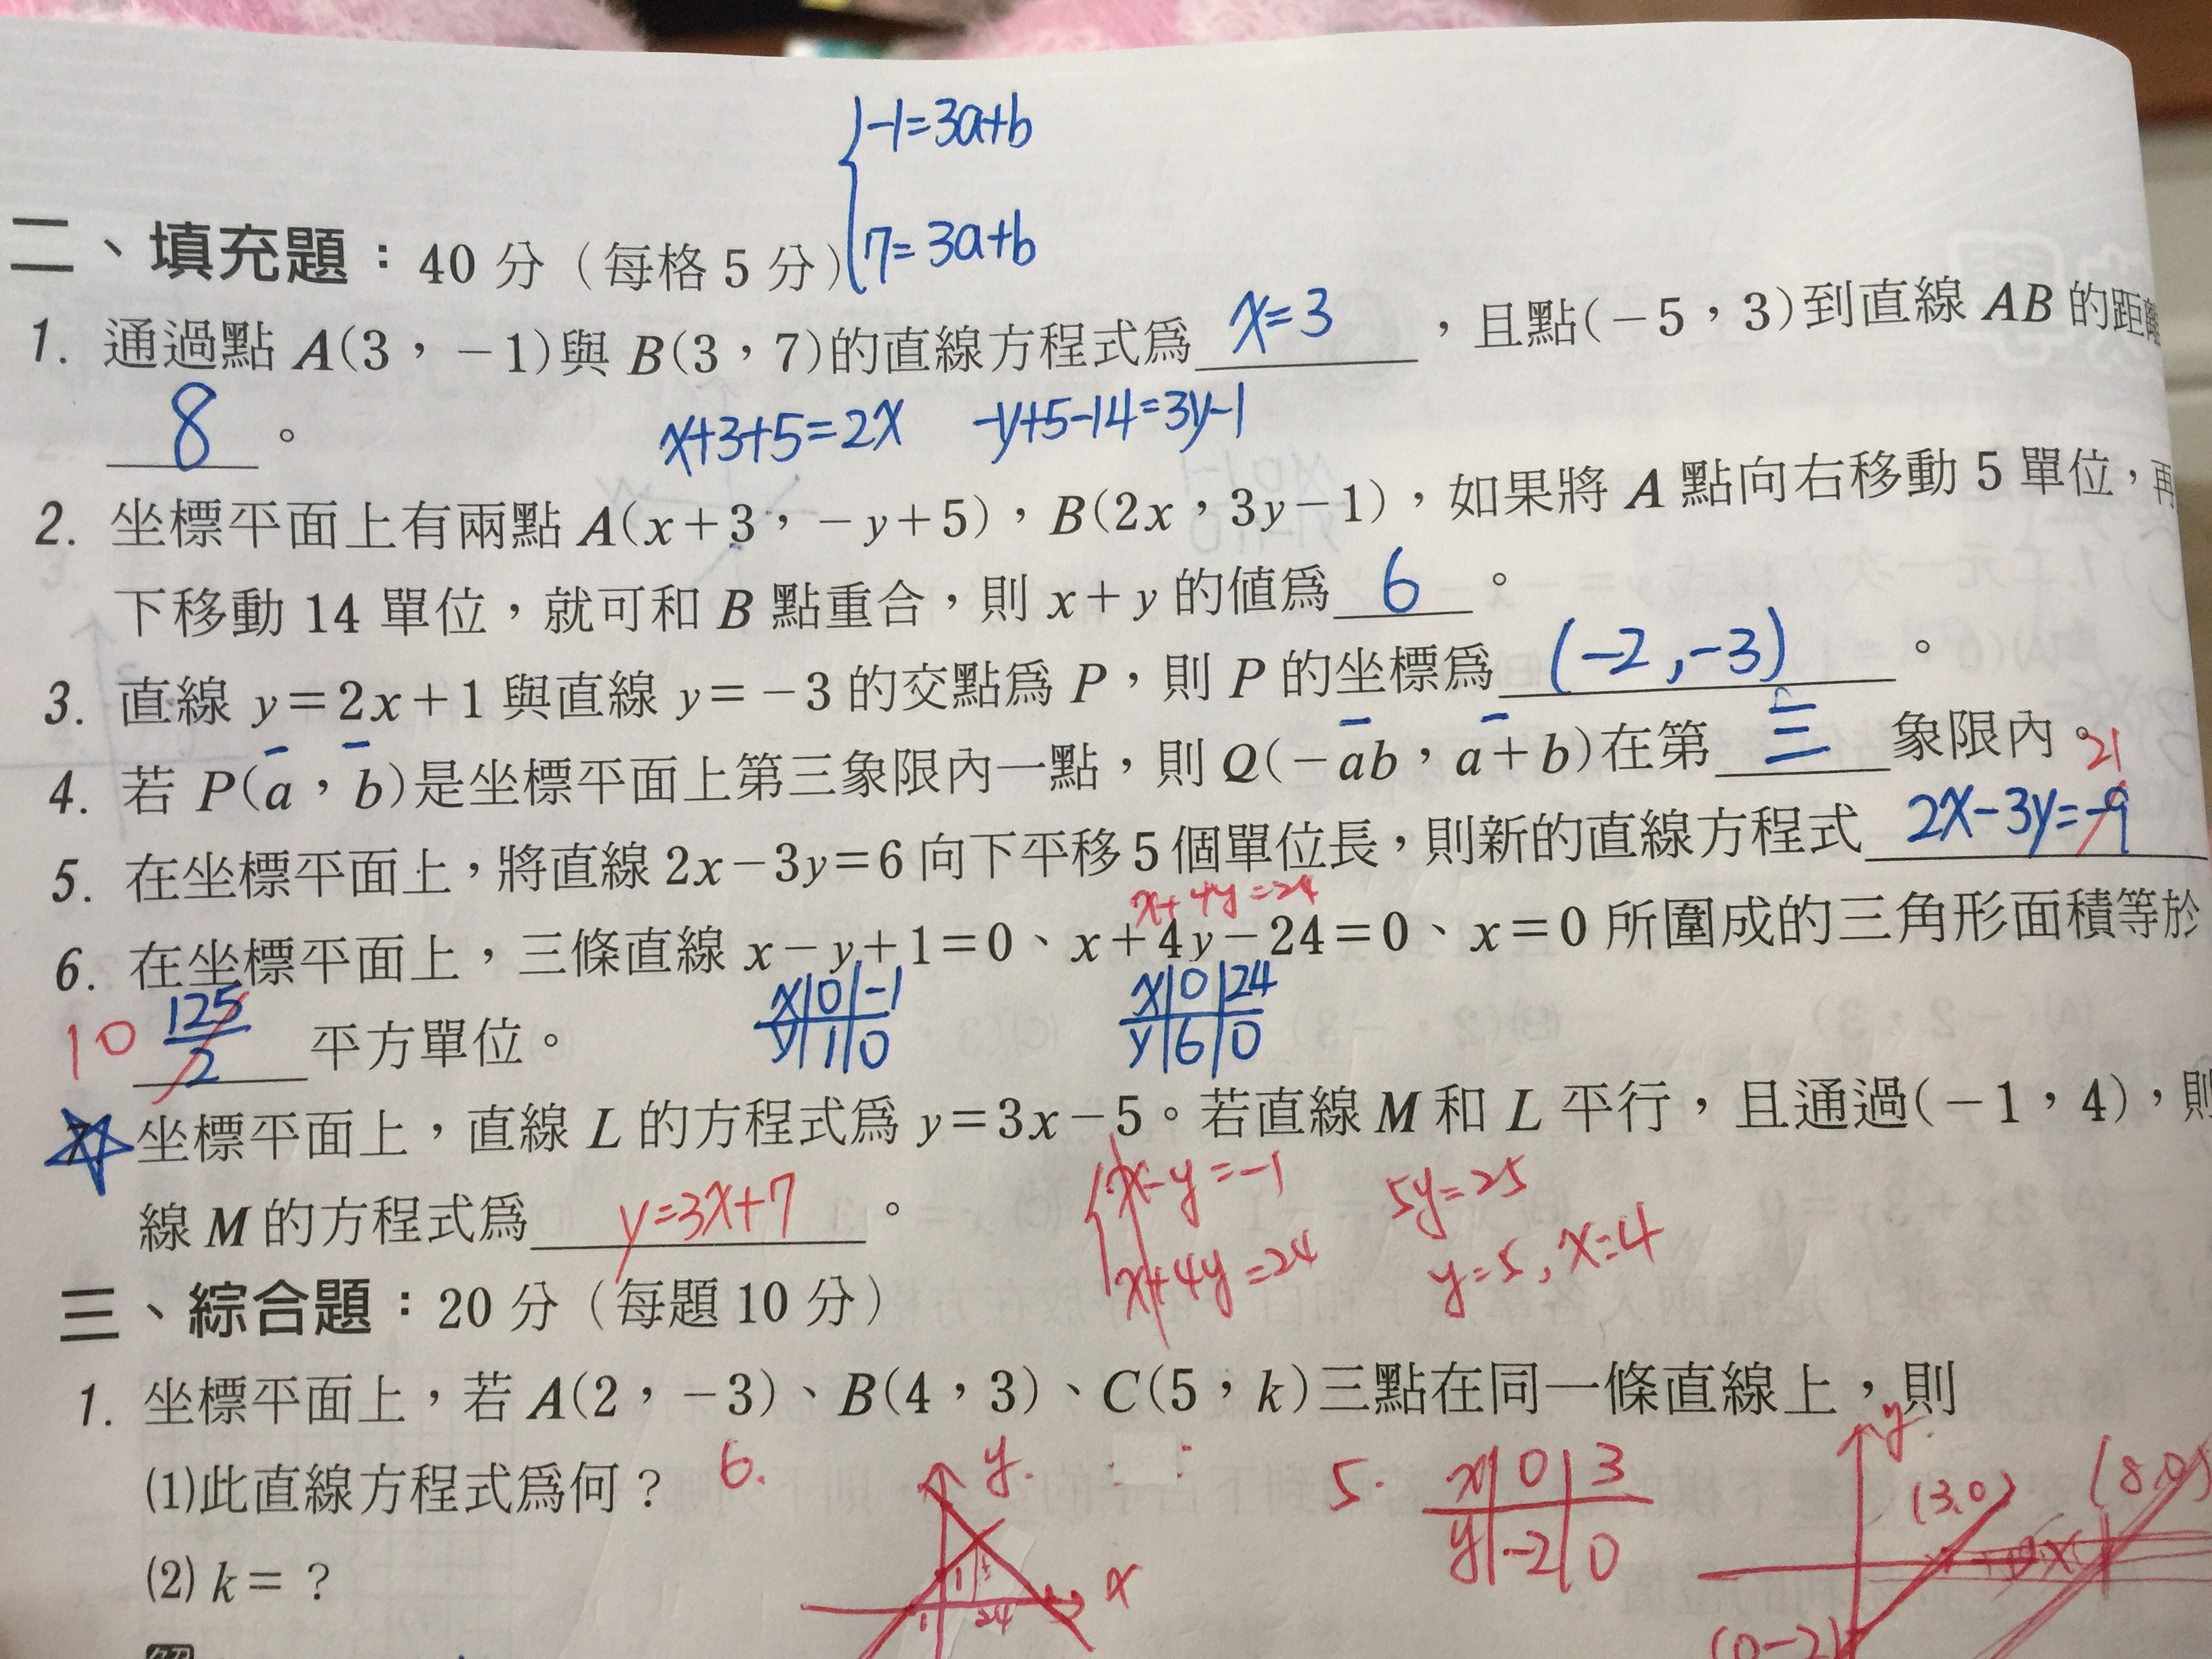 -1=3a+b
7=3a+b
二、填充題：40分（每格5分）
1. 通過點 A(3，-1)與 B(3，7)的直線方程式為 x=3 ，且點(-5，3)到直線 AB 的距離
8 。
x+3+5=2x -y+5-14=3y-1
2. 坐標平面上有兩點 A(x+3，-y+5)，B(2x，3y-1)，如果將 A 點向右移動 5 單位，再
下移動 14 單位，就可和 B 點重合，則 x+y 的值為 6 。
3. 直線 y=2x+1 與直線 y=-3 的交點為 P，則 P 的坐標為 (-2,-3) 。
4. 若 P(a，b)是坐標平面上第三象限內一點，則 Q(-ab，a+b)在第 三 象限內。
21
5. 在坐標平面上，將直線 2x-3y=6 向下平移 5 個單位長，則新的直線方程式 2x-3y=-9
x+4y=24
6. 在坐標平面上，三條直線 x-y+1=0、x+4y-24=0、x=0 所圍成的三角形面積等於
10 125/2 平方單位。
x 0 -1
y 1 0
x 0 24
y 6 0
7. 坐標平面上，直線 L 的方程式為 y=3x-5。若直線 M 和 L 平行，且通過(-1，4)，則
線 M 的方程式為 y=3x+7 。
x-y=-1
x+4y=24
5y=25
y=5, x=4
三、綜合題：20分（每題10分）
1. 坐標平面上，若 A(2，-3)、B(4，3)、C(5，k)三點在同一條直線上，則
(1)此直線方程式為何？
(2) k=？
6.
y
1
24
1
x
5.
x 0 3
y -2 0
y
(3,0)
(8,0)
(0-2)